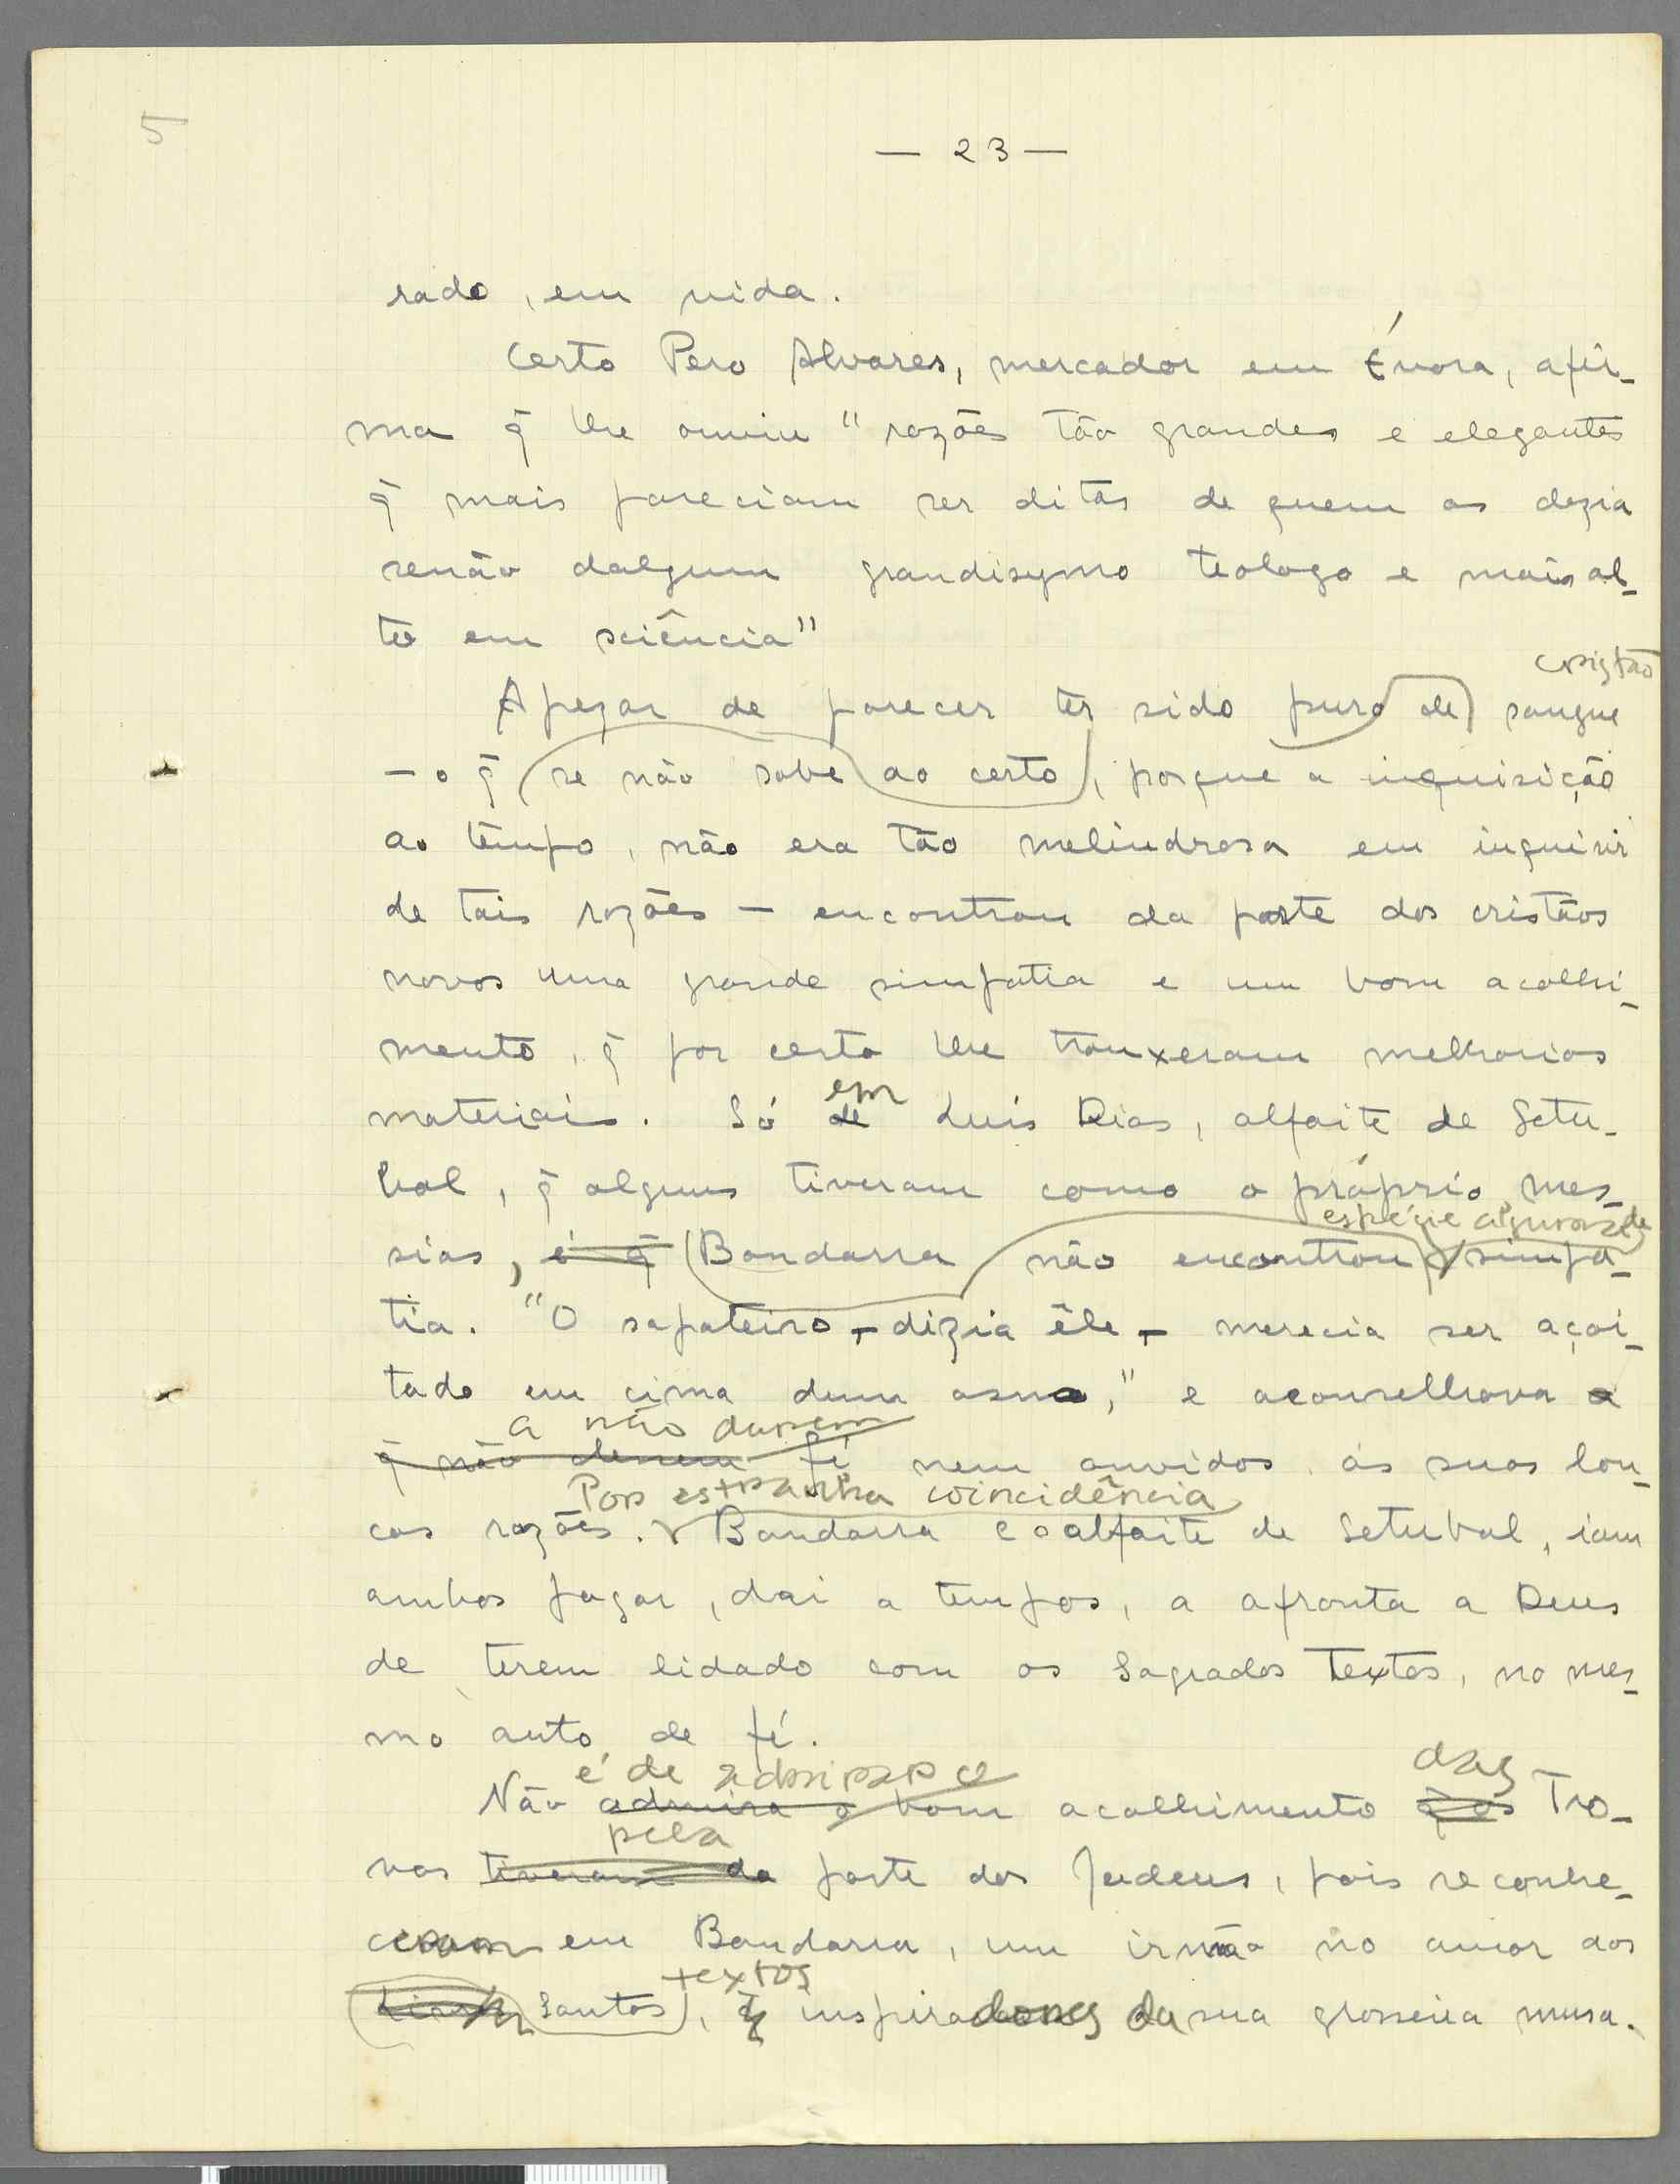 5
— 23 —
rado, em vida.
Certo Pero Alvares, mercador em Évora, afir-
ma q̃ lhe ouviu "razões tão grandes e elegantes
q̃ mais pareciam ser ditas de quem as dezia
senão dalgum grandisymo teologo e mais al-
to em sciência"
cristão
Apezar de parecer ter sido puro de sangue
— o q̃ se não sabe ao certo, porque a inquisição
ao têmpo, não era tão melindrosa em inquirir
de tais razões — encontrou da parte dos cristãos
novos uma grande simpatia e um bom acolhi-
mento, q̃ por certo lhe trouxeram melhorias
em
materiais. Só de Luís Dias, alfaite de Setu-
bal, q̃ alguns tiveram como o próprio mes-
espécie alguma de
sias, é q̃ Bandarra não encontrou simpa-
tia. "O sapateiro, — dizia êle, — merecia ser açoi-
tado em cima dum asno," e aconselhava a
a não darem
q̃ não dessem fé nem ouvidos ás suas lou-
Por estranha coincidência
cas razões. Bandarra e o alfaite de Setubal, iam
ambos pagar, dai a tempos, a afronta a Deus
de terem lidado com os Sagrados Textos, no mes-
mo auto de fé.
é de admirar o
das
Não admira o bom acolhimento q̃ as Tro-
pela
vas tiveram da parte dos Judeus, pois reconhe-
ceram em Bandarra, um irmão no amor aos
textos
Santos, inspiradores da sua grosseira musa.